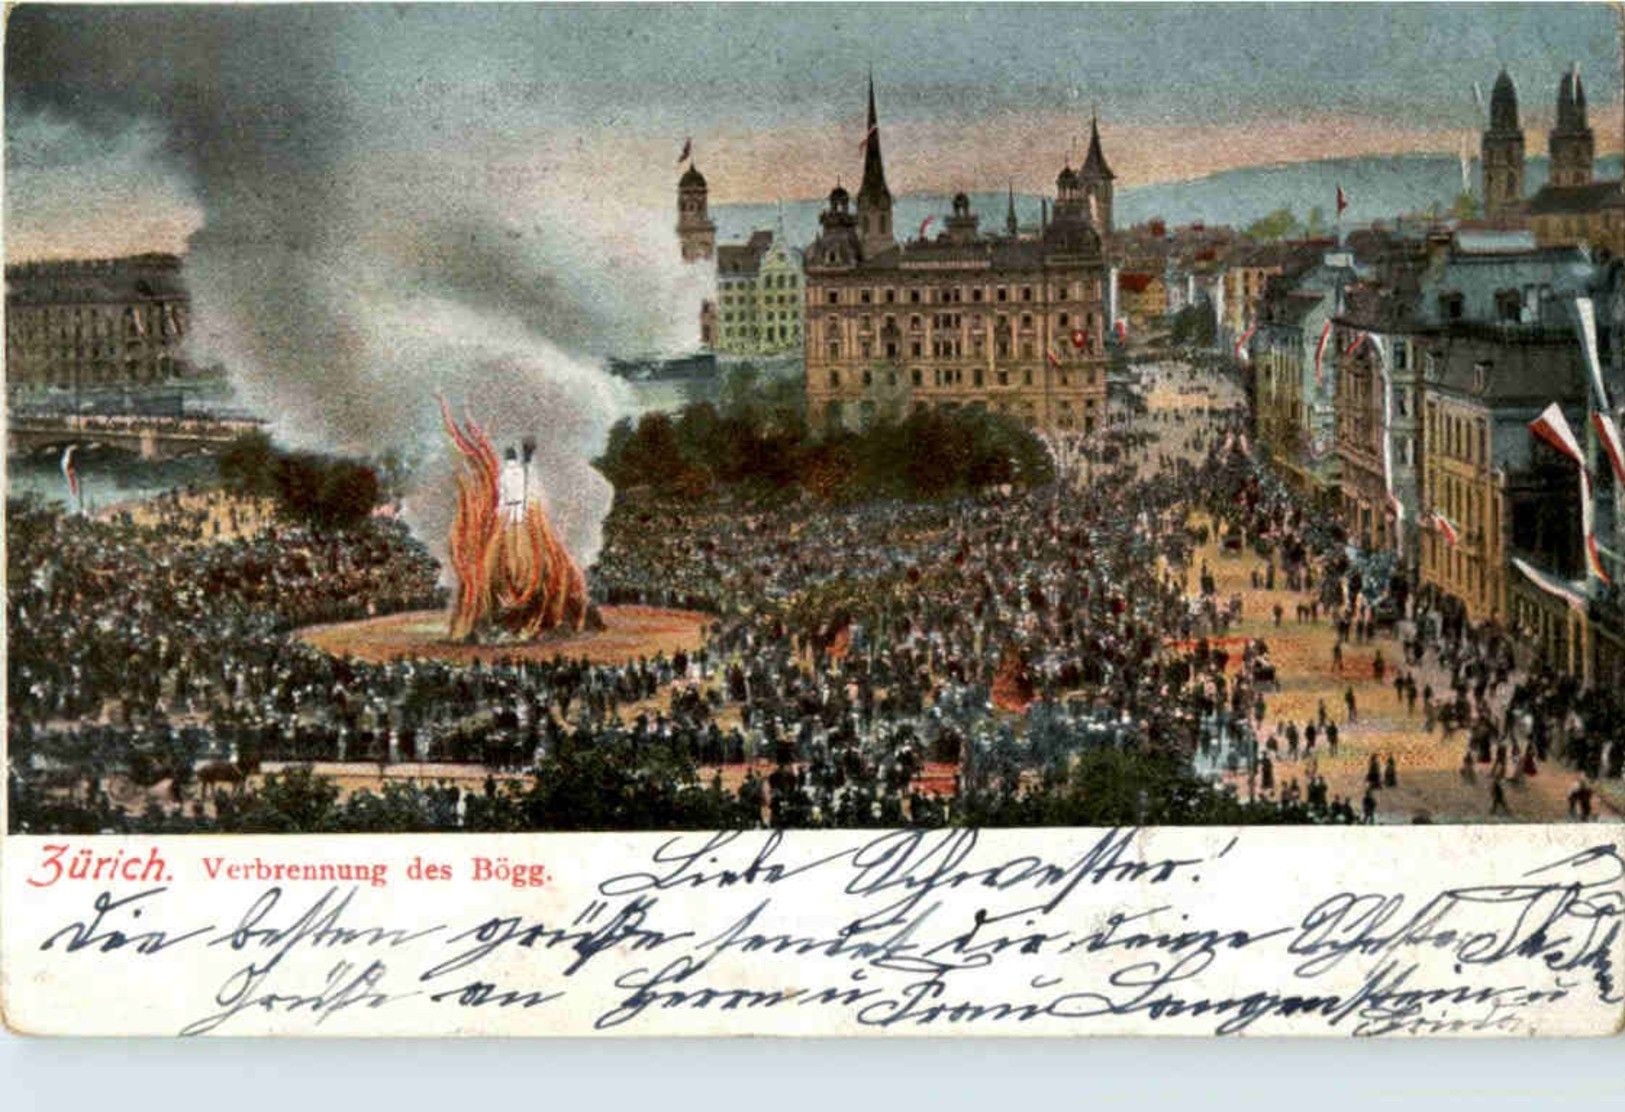 Zürich. Verbrennung des Bögg.
Liebe Schwester!
Die besten grüße sendet dir deine
Grüße an Herrn u Frau Langenstein u
Frieda.